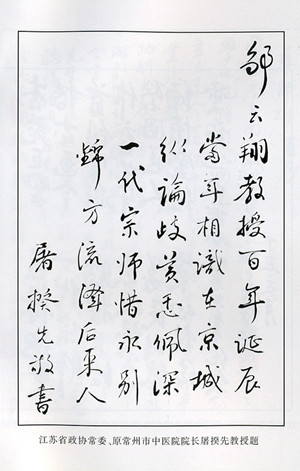 邹云翔教授百年诞辰
當年相識在京城
纵論歧黄恭佩深
一代宗师惜永别
錦方流澤后来人
屠揆先敬書
江苏省政协常委、原常州市中医院院长屠揆先教授题